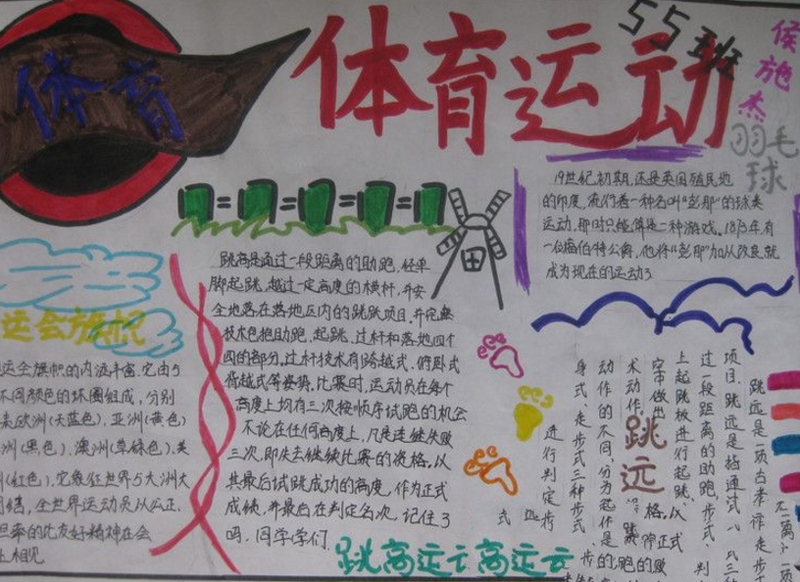 体育
体育运动
55班
侯施杰
羽毛球
19世纪初期,还是英国殖民地
的印度,流行着一种名叫"彭那"的球类
运动,那时只能算是一种游戏。1873年有
一位
公爵,他将"彭那"加以改良就
成为现在的运动了
跳高是通过一段距离的助跑,经单
脚起跳,越过一定高度的横杆,并安
全地落在落地区内的跳跃项目,并完整
技术包括助跑、起跳、过杆和落地四个
四的部分,过杆技术有跨越式、俯卧式
背越式等姿势,比赛时,运动员在每个
高度上均有三次按顺序试跑的机会
不论在任何高度上,凡是连续失败
三次,即失去继续比赛的资格,以
其最后试跳成功的高度,作为正式
成绩,并最后在判定名次,记住了
吗,同学学们
跳高运云高运云
运会旗帜
运会旗帜的内涵丰富,它由5
不同颜色的环圈组成,分别
欧洲(天蓝色),亚洲(黄色)
洲(黑色),澳洲(草绿色),美
(红色),它象征世界5大洲大
团结,全世界运动员以公正、
的比友好精神在会
上相见
跳远
跳远是一项古老
项目,跳远是指通过
过一段距离的助跑,
上起跳板进行起跳,以
空中做出
术动作,
动作的不同,分为
身式、走步式三种步式
进行判定步